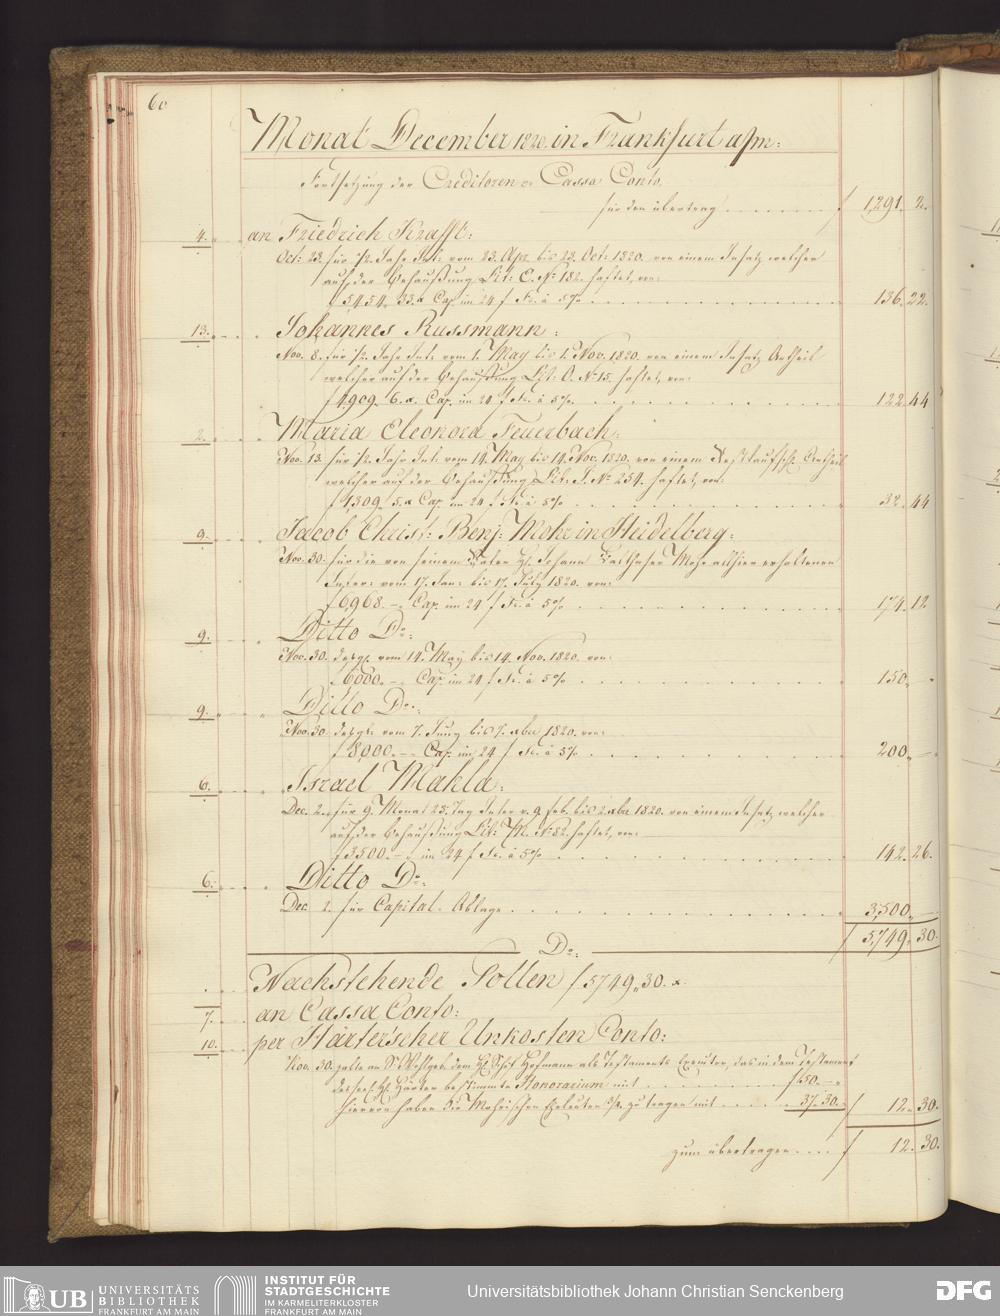 60
Monat December 1820. in Frankfurt a/m:
Fortsetzung der Creditoren Cassa Conto.
für den übertrag f 1,291. 2.
4. an Friedrich Krafft:
Oct: 23. für 1/2 Jahr Int: vom 23. Apr. bis 23. Oct: 1820. von einem Insatz welcher
auf der Behaußung Lit: E. No 182. haftet, von:
f 5454. 33. x Cap. im 24 f Fs. à 5% 136. 22.
13. Johannes Russmann:
Nov. 8. für 1/2 Jahr Int: vom 1. May bis 1. Nov. 1820. von einem Insatz Antheil
welcher auf der Behaußung Lit: O. No 15. haftet, von:
f 4,909. 6. x. Cap. im 24 f Fs. à 5%. 122. 44
2. Maria Eleonora Feuerbach:
Nov. 13. für 1/2 Jahr Int: vom 14. May bis 14. Nov. 1820. von einem Antheil
welcher auf der Behaußung Lit: J. No 254. haftet, von:
f 1,309. 5. x Cap. im 24 f Fs. à 5% 32. 44
9. Jacob Christ: Benj: Mohr in Heidelberg:
Nov. 30. für die von seinem Vater Hl. Johann Balthaser Mohr allhier erhaltenen
Inter: vom 17. Jan: bis 17. July 1820. von:
f 6,968. -. Cap. im 24 f Fs. à 5% 174. 12
9. Ditto Do:
Nov. 30. desgl. vom 14. May bis 14. Nov. 1820. von:
f 6000. -. Cap. im 24 f Fs. à 5% 150. -
9. Ditto Do:
Nov. 30. desgl: vom 7. Juny bis 7. xber 1820. von:
f 8,000. -. Cap. im 24 f Fs. à 5% 200. -
6. Israel Mahla:
Dec. 2. für 9. Monat 23. Tag Inter v. 9. Feb. bis 2. xber 1820. von einem Insatz, welcher
auf der Behaußung Lit: M. No 82. haftet, von:
f 3500. -. im 24 f Fs. à 5% 142. 26.
6. Ditto Do:
Dec. 2. für Capital-Ablage 3,500. -
f 5,749. 30.
Do:
Nachstehende Sollen f 5749,, 30. x.
7. an Cassa Conto:
10. per Härter'scher Unkosten Conto:
Nov. 30. zalte an Sr Wohlgeb. dem Hl. Hofmann als Testaments Executor, das in dem Testament
des seel. Hl. Härter bestimmte Honorarium mit f 50. -
hiervon haben die Mohrischen Eheleuten 3/4. zu tragen mit 37. 30. f 12. 30.
zum übertragen f 12. 30.
UB UNIVERSITÄTS
BIBLIOTHEK
FRANKFURT AM MAIN
INSTITUT FÜR
STADTGESCHICHTE
IM KARMELITERKLOSTER
FRANKFURT AM MAIN
Universitätsbibliothek Johann Christian Senckenberg
DFG